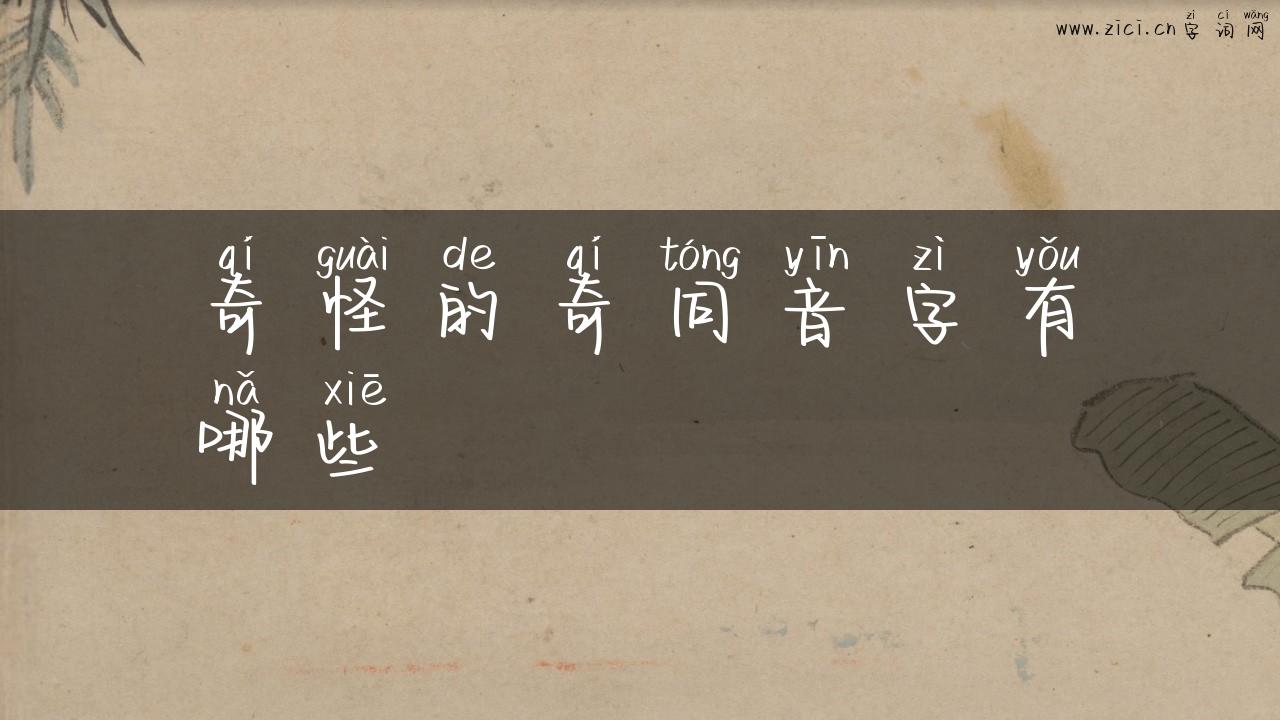 zì cí wǎng
www.zici.cn 字词网
qí guài de qí tóng yīn zì yǒu
奇怪的奇同音字有
nǎ xiē
哪些